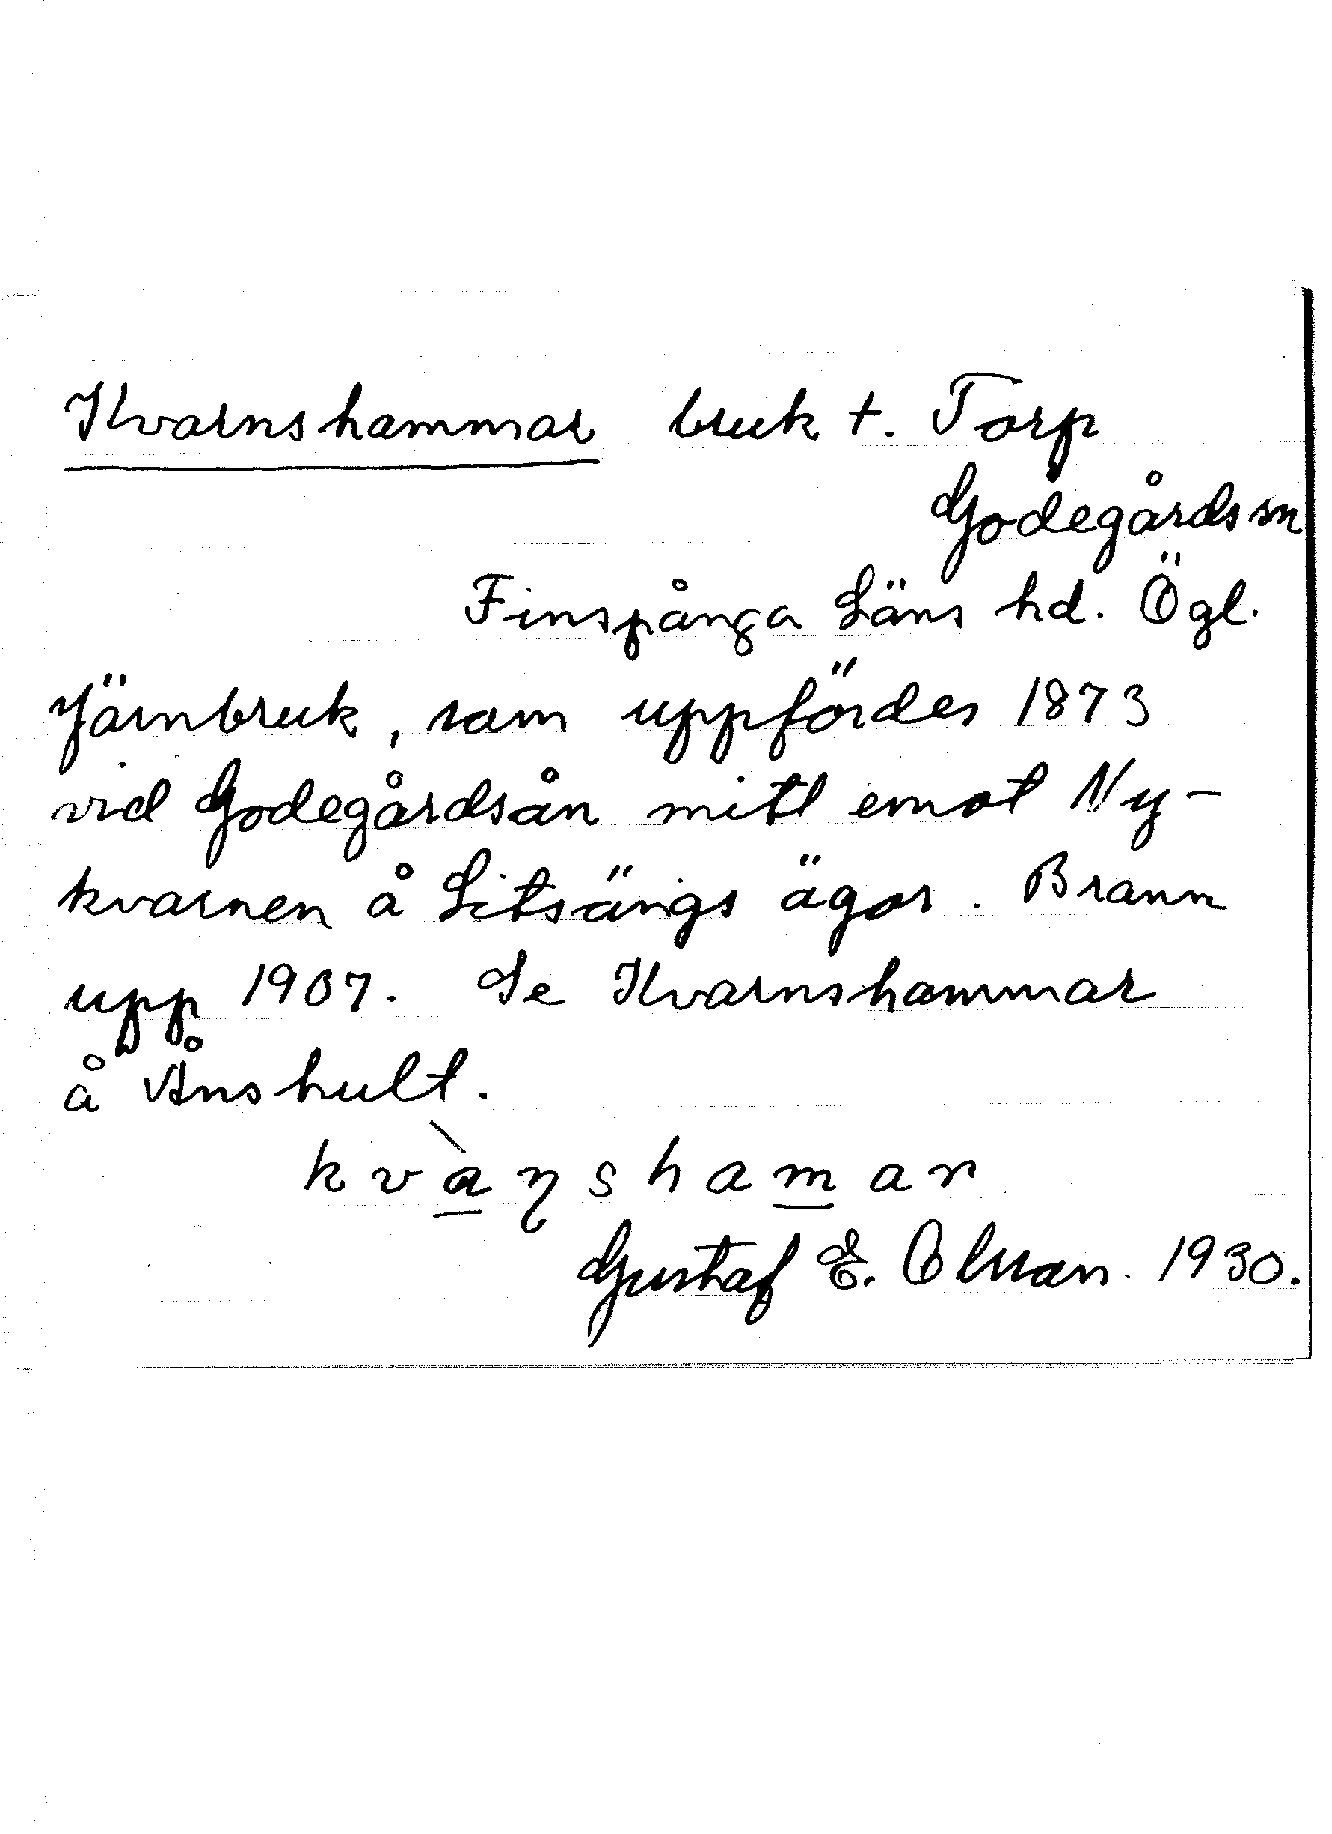 Kvarnshammar bruk t. Torp
Godegårds sn
Finspånga Läns hd. Ögl.
Järnbruk, som uppfördes 1873
vid Godegårdsån mitt emot Ny-
kvarnen å Sitsängs ägor. Brann
upp 1907. Se Kvarnshammar
å Ånshult.
kvàṇshamar
Gustaf E. Olsson. 1930.